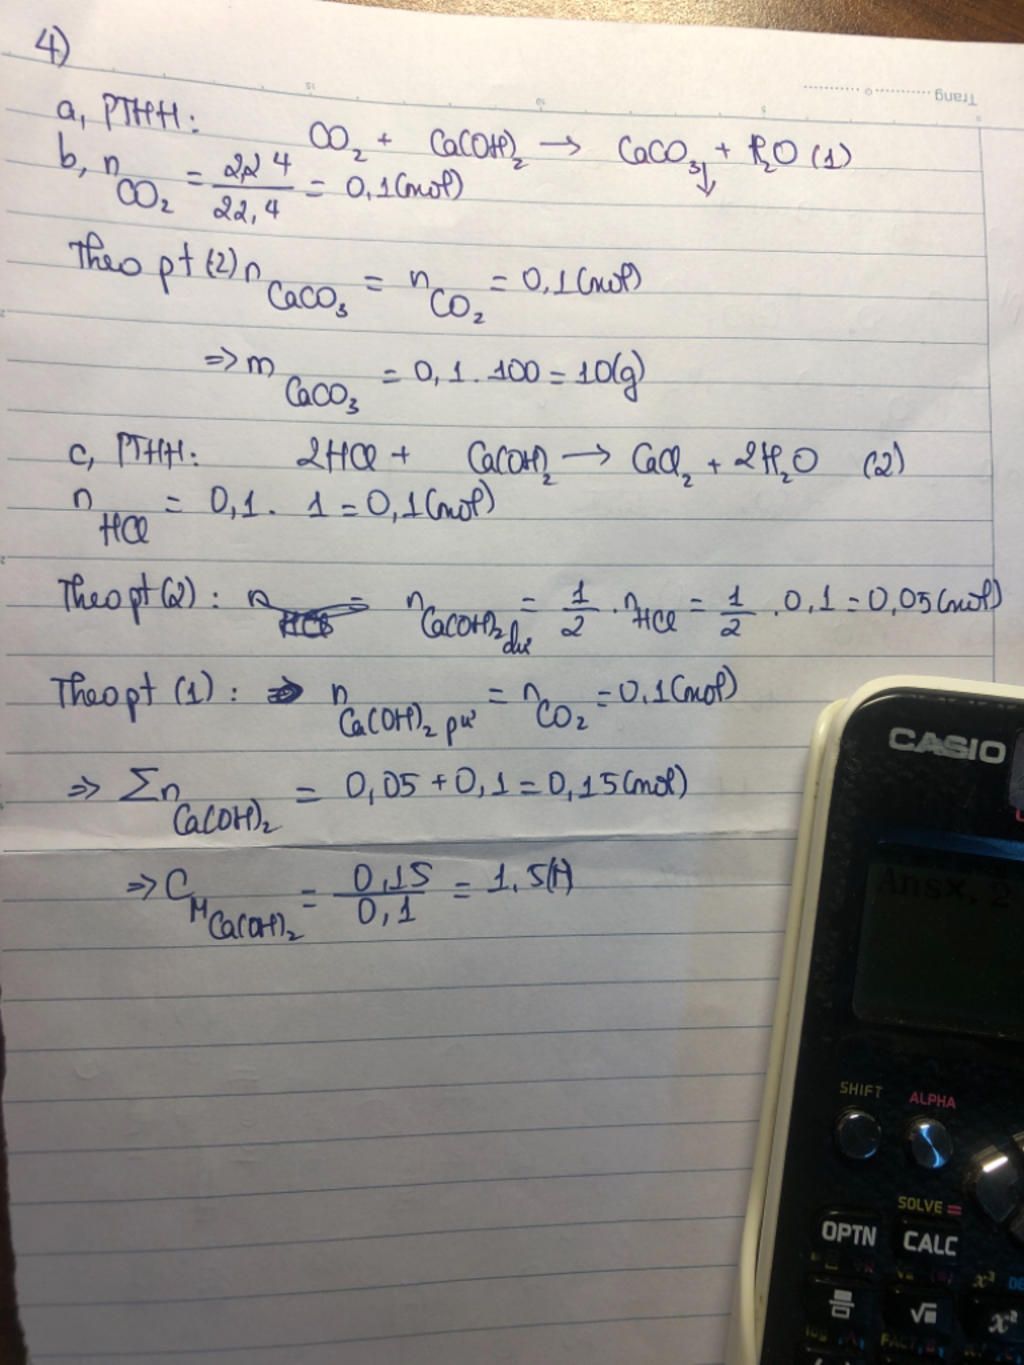 4)
Trang
15
10
5
a, PTHH: CO₂ + Ca(OH)₂ → CaCO₃↓ + H₂O (1)
b, n CO₂ = 2,24 / 22,4 = 0,1 (mol)
Theo pt (2) n CaCO₃ = n CO₂ = 0,1 (mol)
=> m CaCO₃ = 0,1 . 100 = 10 (g)
c, PTHH: 2HCl + Ca(OH)₂ → CaCl₂ + 2H₂O (2)
n HCl = 0,1 . 1 = 0,1 (mol)
Theo pt (2) : n Ca(OH)₂ dư = 1/2 . n HCl = 1/2 . 0,1 = 0,05 (mol)
Theo pt (1) : n Ca(OH)₂ pư = n CO₂ = 0,1 (mol)
=> Σn Ca(OH)₂ = 0,05 + 0,1 = 0,15 (mol)
=> C M Ca(OH)₂ = 0,15 / 0,1 = 1,5 (M)
CASIO
Ans×
SHIFT ALPHA
SOLVE =
OPTN CALC
x³
√
x²
FACT